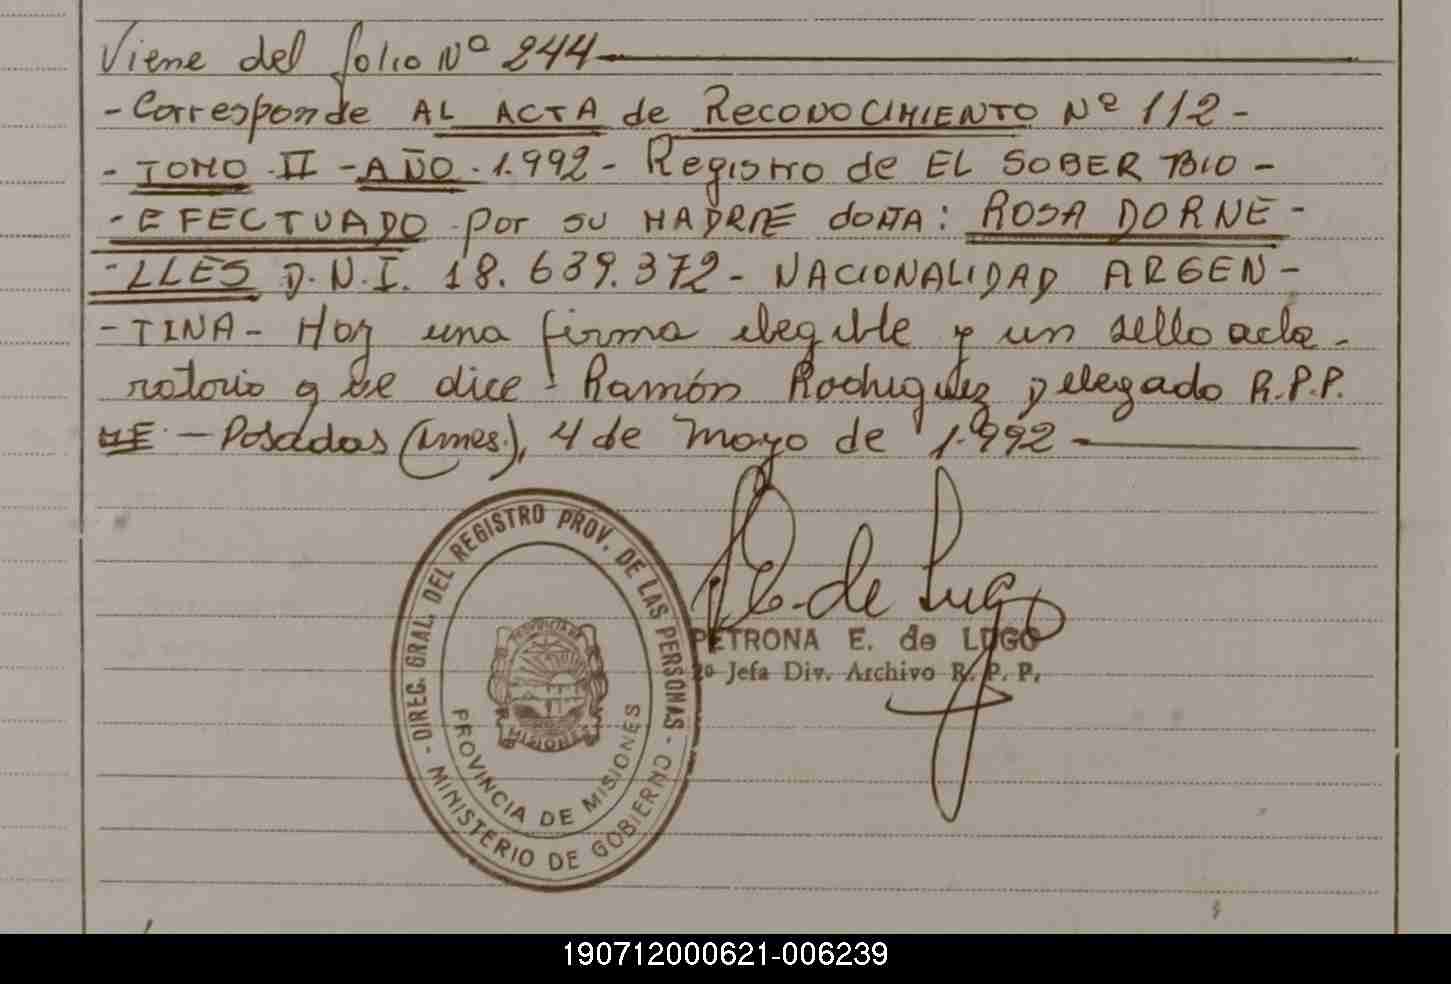 Viene del folio Nº 244
- Corresponde AL ACTA de RECONOCIMIENTO Nº 112 -
- TOMO II - AÑO - 1.992 - Registro de EL SOBERBIO -
- EFECTUADO por su MADRE doña: ROSA DORNE -
- LLES D.N.I. 18.639.372 - NACIONALIDAD ARGEN -
- TINA - Hay una firma elegible y un sello acla -
ratorio q se dice - Ramón Rodriguez Delegado R.P.P.
- Posadas (Mnes.), 4 de Mayo de 1.992 -
- DIREC. GRAL. DEL REGISTRO PROV. DE LAS PERSONAS -
MINISTERIO DE GOBIERNO
PROVINCIA DE MISIONES
PROVINCIA DE
MISIONES
P. E. de Lugo
PETRONA E. de LUGO
2º Jefa Div. Archivo R. P. P.
190712000621-006239